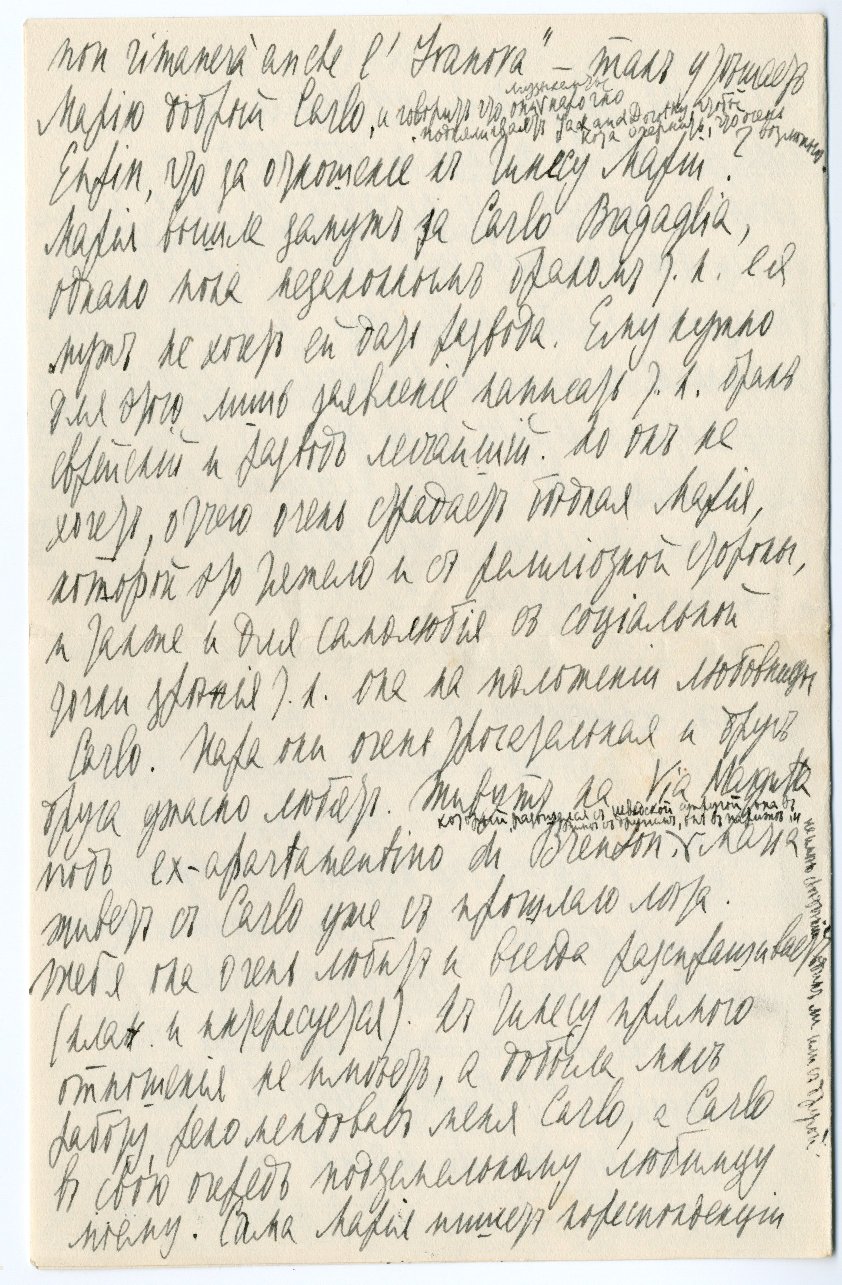 non rimanerà anche l' Ivanova" – такъ утѣшаетъ
Марію добрый Carlo, и говоритъ что они нарочно
музыкантъ
Jack and Dorothy
что очень возможно.
Enfin, что за отношеніе къ Гинесу Маріи?
Марія вышла замужъ за Carlo Bragaglia,
однако пока незаконнымъ бракомъ т. к. ея
мужъ не хочетъ ей дать развода. Ему нужно
для этого лишь заявленіе написать т. к. бракъ
еврейскій и разводъ легчайшій. Но онъ не
хочетъ, отчего очень страдаетъ бѣдная Марія,
которой это тяжело и съ религіозной стороны,
и также и для самолюбія съ соціальной
точки зрѣнія т. к. она на положеніи любовницы
Carlo. Пара они очень трогательная и другъ
друга ужасно любятъ. Живутъ на Via Margutta
подъ ex-apartamentino di Brenson. Maria
живетъ съ Carlo уже съ прошлаго лѣта.
Тебя она очень любитъ и всегда разспрашиваетъ
(и интересуется). Къ Гинесу прямого
отношенія не имѣетъ, а добыла мнѣ
работу, рекомендовавъ меня Carlo, а Carlo
въ свою очередь подземельному любимцу
моему. Сама Марія пишетъ корреспонденціи